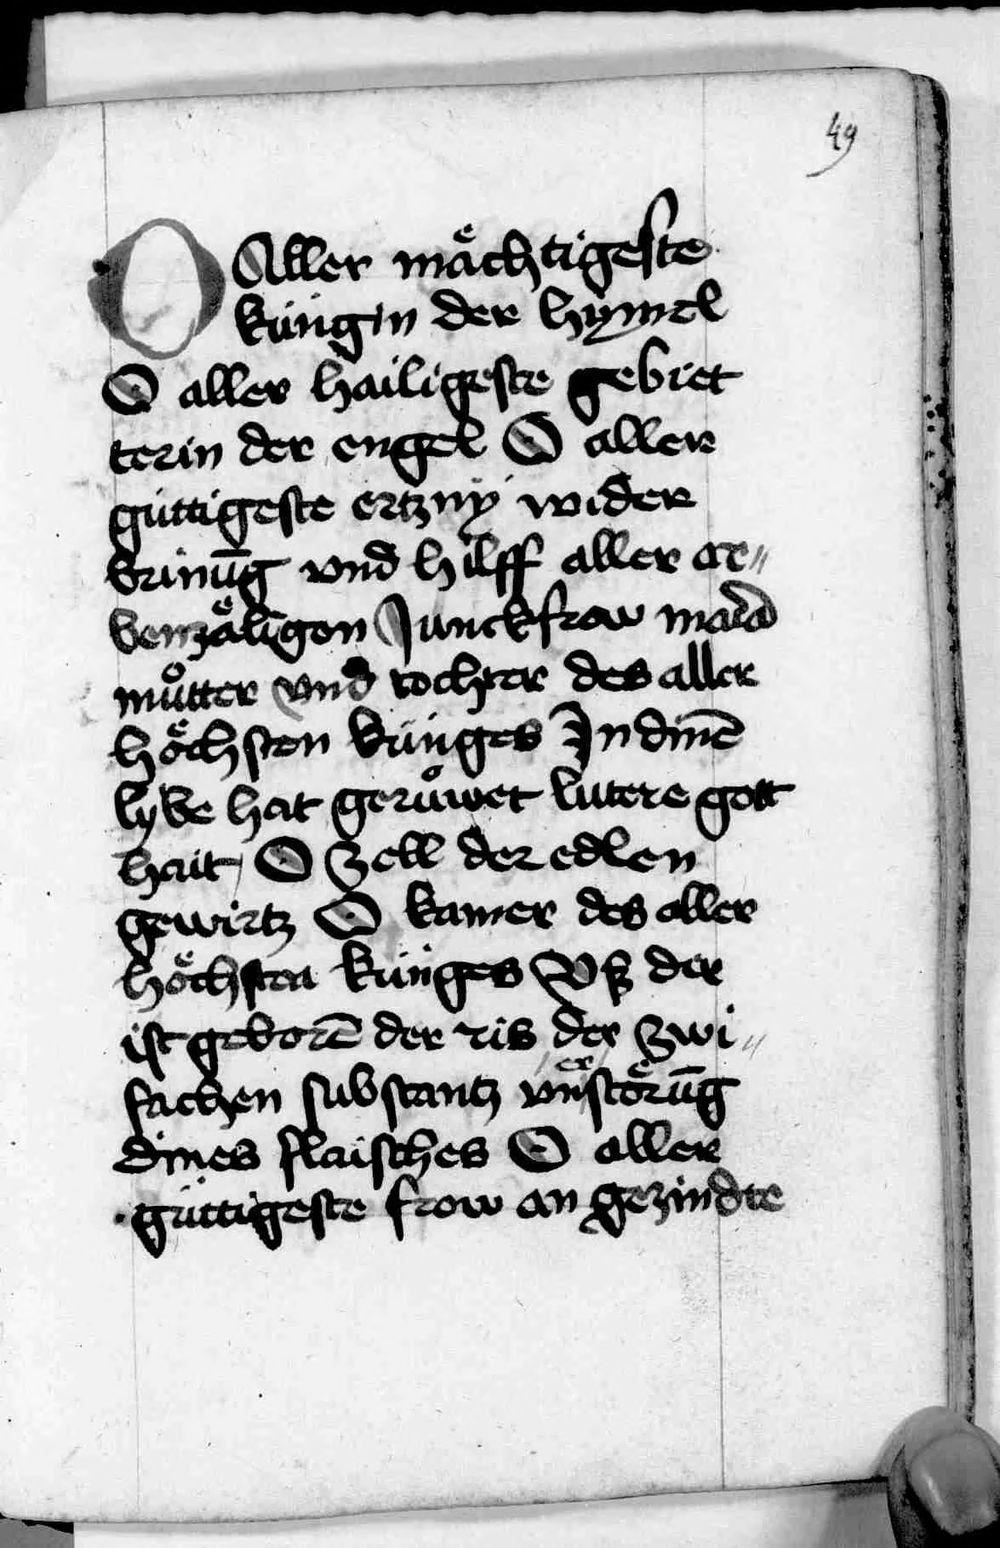 49
O Aller mächtigeste
küngin der hymel
O aller hailigeste gebiet
terin der engel O aller
güttigeste ertzny wider
brinūg vnd hilff aller ar„
bemzäligen Junckfrow maid
můtter vnd tochter des aller
höchsten künges In dinē
lybe hat gerůwet lutere gott
hait O zell der edlen
gewirtz O kamer des aller
höchsten künges Vß der
ist geborē der ris der zwi„
fachen substantz vn er störūg
dines flaisches O aller
güttigeste frow an gezindte